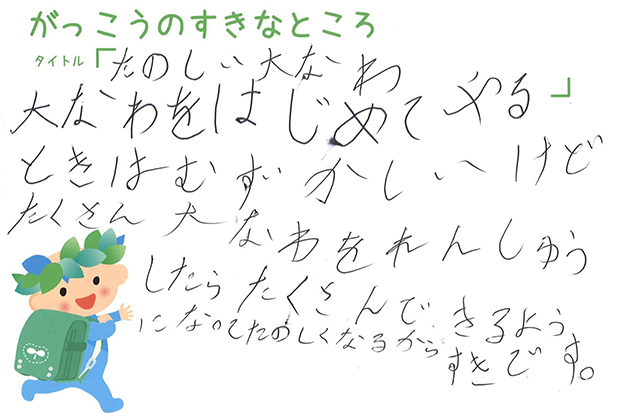 がっこうのすきなところ
タイトル「たのしい大なわ」
大なわをはじめてやる
ときはむずかしいけど
たくさん大なわをれんしゅう
したらたくさんできるよう
になってたのしくなるからすきです。